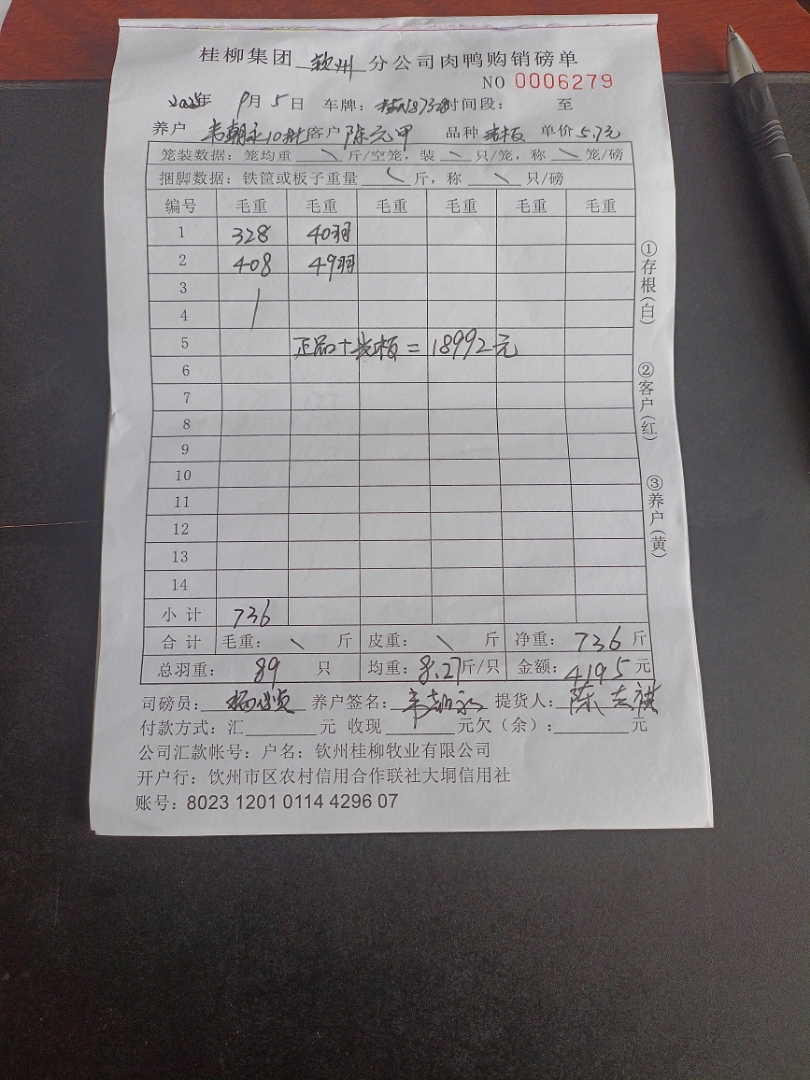 桂柳集团 钦州 分公司肉鸭购销磅单
NO 0006279
2025年 9月 5日 车牌: 时间段: 至
养户 韦朝永10批 客户 陈元甲 品种 单价 5.7元
笼装数据: 笼均重 \ 斤/空笼, 装 \ 只/笼, 称 \ 笼/磅
捆脚数据: 铁筐或板子重量 \ 斤, 称 \ 只/磅
编号 毛重 毛重 毛重 毛重 毛重 毛重
1 328 40羽
2 408 49羽
3
4
5 正品+ 板 = 18992元
6
7
8
9
10
11
12
13
14
小计 736
合计 毛重: \ 斤 皮重: \ 斤 净重: 736 斤
总羽重: 89 只 均重: 8.27斤/只 金额: 4195 元
司磅员: 养户签名: 韦朝永 提货人: 陈
付款方式: 汇 元 收现 元欠(余): 元
公司汇款帐号: 户名: 钦州桂柳牧业有限公司
开户行: 钦州市区农村信用合作联社大垌信用社
账号: 8023 1201 0114 4296 07
①存根(白)
②客户(红)
③养户(黄)